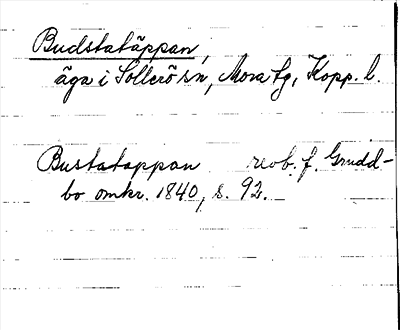 Budstatäppan,
äga i Sollerö sn, Mora tg, Kopp. l.
Bustatappan reob. f. Grudd-
bo omkr. 1840, s. 92.